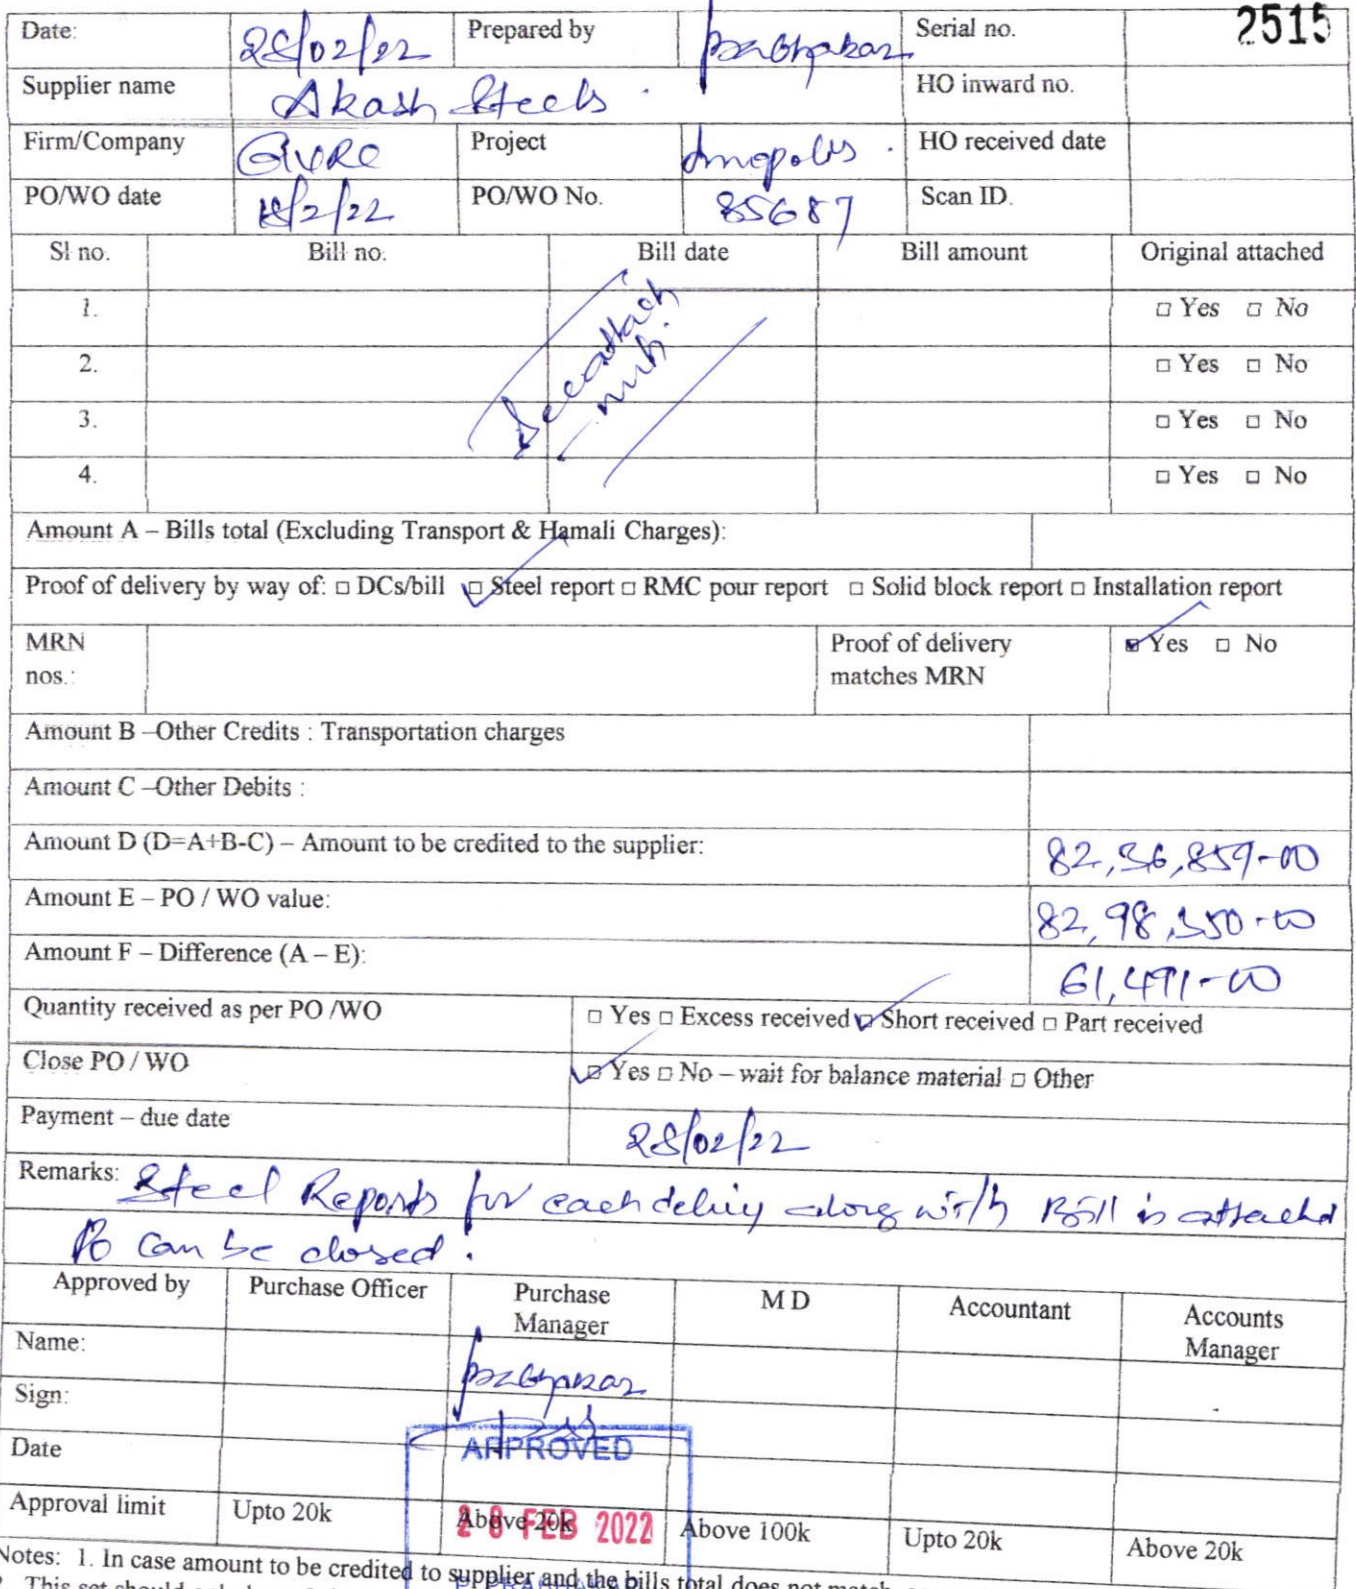 Date: 28/02/22 Prepared by Prabhakar Serial no. 2515
Supplier name Akash Steels. HO inward no.
Firm/Company GVRC Project Innopolis. HO received date
PO/WO date 18/2/22 PO/WO No. 85687 Scan ID.
Sl no. Bill no. Bill date Bill amount Original attached
1. □ Yes □ No
2. □ Yes □ No
3. □ Yes □ No
4. □ Yes □ No
See attach
Amount A – Bills total (Excluding Transport & Hamali Charges):
Proof of delivery by way of: □ DCs/bill □ Steel report □ RMC pour report □ Solid block report □ Installation report
MRN nos.: Proof of delivery matches MRN □ Yes □ No
Amount B –Other Credits : Transportation charges
Amount C –Other Debits :
Amount D (D=A+B-C) – Amount to be credited to the supplier: 82,36,859-00
Amount E – PO / WO value: 82,98,350-00
Amount F – Difference (A – E): 61,491-00
Quantity received as per PO /WO □ Yes □ Excess received □ Short received □ Part received
Close PO / WO □ Yes □ No – wait for balance material □ Other
Payment – due date 28/02/22
Remarks: Steel Reports for each delivery along with Bill is attached
PO can be closed.
Approved by Purchase Officer Purchase Manager M D Accountant Accounts Manager
Name: Prabhakar
Sign:
APPROVED
Date
28 FEB 2022
Approval limit Upto 20k Above 20k Above 100k Upto 20k Above 20k
Notes: 1. In case amount to be credited to supplier and the bills total does not match